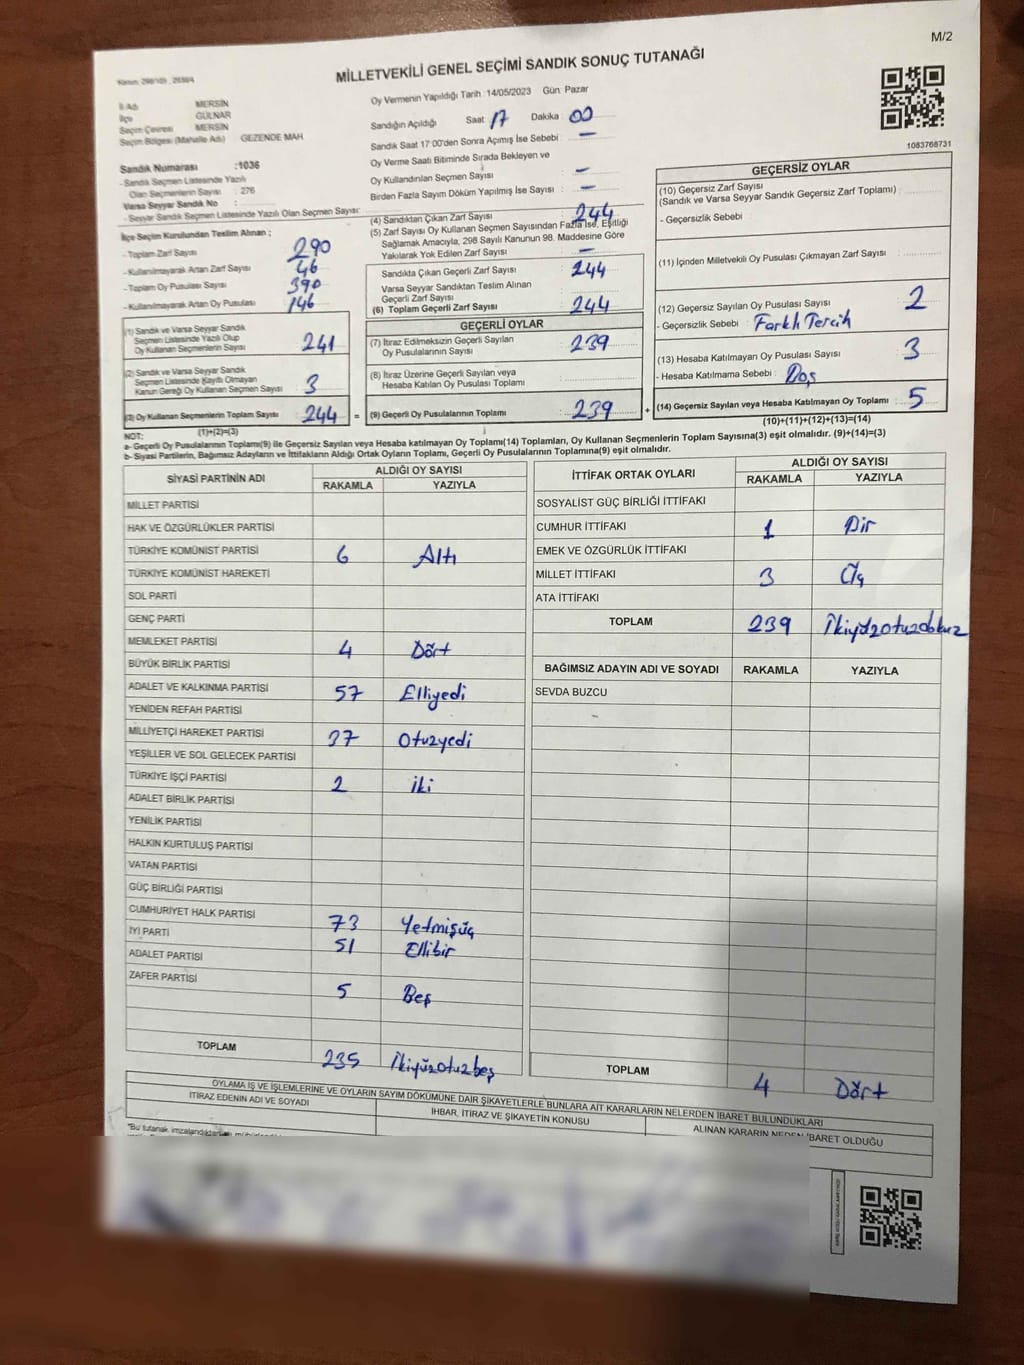 M/2
MİLLETVEKİLİ GENEL SEÇİMİ SANDIK SONUÇ TUTANAĞI
İl Adı MERSİN
İlçe GÜLNAR
Seçim Çevresi MERSİN
Seçim Bölgesi (Mahalle Adı) GEZENDE MAH.
Sandık Numarası :1036
- Sandık Seçmen Listesinde Yazılı
Olan Seçmenlerin Sayısı : 276
Varsa Seyyar Sandık No :
- Seyyar Sandık Seçmen Listesinde Yazılı Olan Seçmen Sayısı:
Oy Vermenin Yapıldığı Tarih :14/05/2023 Gün: Pazar
Sandığın Açıldığı Saat : 17 Dakika : 00
Sandık Saat 17:00'den Sonra Açımış İse Sebebi : —
Oy Verme Saati Bitiminde Sırada Bekleyen ve
Oy Kullandırılan Seçmen Sayısı : —
Birden Fazla Sayım Döküm Yapılmış İse Sayısı : —
1083768731
İlçe Seçim Kurulundan Teslim Alınan ;
- Toplam Zarf Sayısı : 290
- Kullanılmayarak Artan Zarf Sayısı : 46
- Toplam Oy Pusulası Sayısı : 390
- Kullanılmayarak Artan Oy Pusulası : 146
(1) Sandık ve Varsa Seyyar Sandık
Seçmen Listesinde Yazılı Olup
Oy Kullanan Seçmenlerin Sayısı : 241
(2) Sandık ve Varsa Seyyar Sandık
Seçmen Listesinde Kayıtlı Olmayan
Kanun Gereği Oy Kullanan Seçmen Sayısı : 3
(3) Oy Kullanan Seçmenlerin Toplam Sayısı : 244 =
(1)+(2)=(3)
(4) Sandıktan Çıkan Zarf Sayısı : 244
(5) Zarf Sayısı Oy Kullanan Seçmen Sayısından Fazla İse, Eşitliği
Sağlamak Amacıyla, 298 Sayılı Kanunun 98. Maddesine Göre
Yakılarak Yok Edilen Zarf Sayısı : —
Sandıkta Çıkan Geçerli Zarf Sayısı : 244
Varsa Seyyar Sandıktan Teslim Alınan
Geçerli Zarf Sayısı :
(6) Toplam Geçerli Zarf Sayısı : 244
GEÇERLİ OYLAR
(7) İtiraz Edilmeksizin Geçerli Sayılan
Oy Pusulalarının Sayısı : 239
(8) İtiraz Üzerine Geçerli Sayılan veya
Hesaba Katılan Oy Pusulası Toplamı :
(9) Geçerli Oy Pusulalarının Toplamı : 239 +
GEÇERSİZ OYLAR
(10) Geçersiz Zarf Sayısı
(Sandık ve Varsa Sandık Geçersiz Zarf Toplamı) :
- Geçersizlik Sebebi :
(11) İçinden Milletvekili Oy Pusulası Çıkmayan Zarf Sayısı :
(12) Geçersiz Sayılan Oy Pusulası Sayısı : 2
- Geçersizlik Sebebi : Farklı Tercih
(13) Hesaba Katılmayan Oy Pusulası Sayısı : 3
- Hesaba Katılmama Sebebi : Boş
(14) Geçersiz Sayılan veya Hesaba Katılmayan Oy Toplamı : 5
(10)+(11)+(12)+(13)=(14)
NOT:
a- Geçerli Oy Pusulalarının Toplamı(9) ile Geçersiz Sayılan veya Hesaba katılmayan Oy Toplamı(14) Toplamları, Oy Kullanan Seçmenlerin Toplam Sayısına(3) eşit olmalıdır. (9)+(14)=(3)
b- Siyasi Partilerin, Bağımsız Adayların ve İttifakların Aldığı Oyların Toplamı, Geçerli Oy Pusulalarının Toplamına(9) eşit olmalıdır.
SİYASİ PARTİNİN ADI ALDIĞI OY SAYISI
RAKAMLA YAZIYLA
MİLLET PARTİSİ
HAK VE ÖZGÜRLÜKLER PARTİSİ
TÜRKİYE KOMÜNİST PARTİSİ 6 Altı
TÜRKİYE KOMÜNİST HAREKETİ
SOL PARTİ
GENÇ PARTİ
MEMLEKET PARTİSİ 4 Dört
BÜYÜK BİRLİK PARTİSİ
ADALET VE KALKINMA PARTİSİ 57 Elliyedi
YENİDEN REFAH PARTİSİ
MİLLİYETÇİ HAREKET PARTİSİ 37 Otuzyedi
YEŞİLLER VE SOL GELECEK PARTİSİ
TÜRKİYE İŞÇİ PARTİSİ 2 İki
ADALET BİRLİK PARTİSİ
YENİLİK PARTİSİ
HALKIN KURTULUŞ PARTİSİ
VATAN PARTİSİ
GÜÇ BİRLİĞİ PARTİSİ
CUMHURİYET HALK PARTİSİ 73 Yetmişüç
İYİ PARTİ 51 Ellibir
ADALET PARTİSİ
ZAFER PARTİSİ 5 Beş
TOPLAM 235 İkiyüzotuzbeş
İTTİFAK ORTAK OYLARI ALDIĞI OY SAYISI
RAKAMLA YAZIYLA
SOSYALİST GÜÇ BİRLİĞİ İTTİFAKI
CUMHUR İTTİFAKI 1 Bir
EMEK VE ÖZGÜRLÜK İTTİFAKI
MİLLET İTTİFAKI 3 Üç
ATA İTTİFAKI
TOPLAM 239 İkiyüzotuzdokuz
BAĞIMSIZ ADAYIN ADI VE SOYADI RAKAMLA YAZIYLA
SEVDA BUZCU
TOPLAM 4 Dört
OYLAMA İŞ VE İŞLEMLERİNE VE OYLARIN SAYIM DÖKÜMÜNE DAİR ŞİKAYETLERLE BUNLARA AİT KARARLARIN NELERDEN İBARET BULUNDUKLARI
İTİRAZ EDENİN ADI VE SOYADI
İHBAR, İTİRAZ VE ŞİKAYETİN KONUSU
ALINAN KARARIN NEDEN İBARET OLDUĞU
"Bu tutanak imzalandıktan